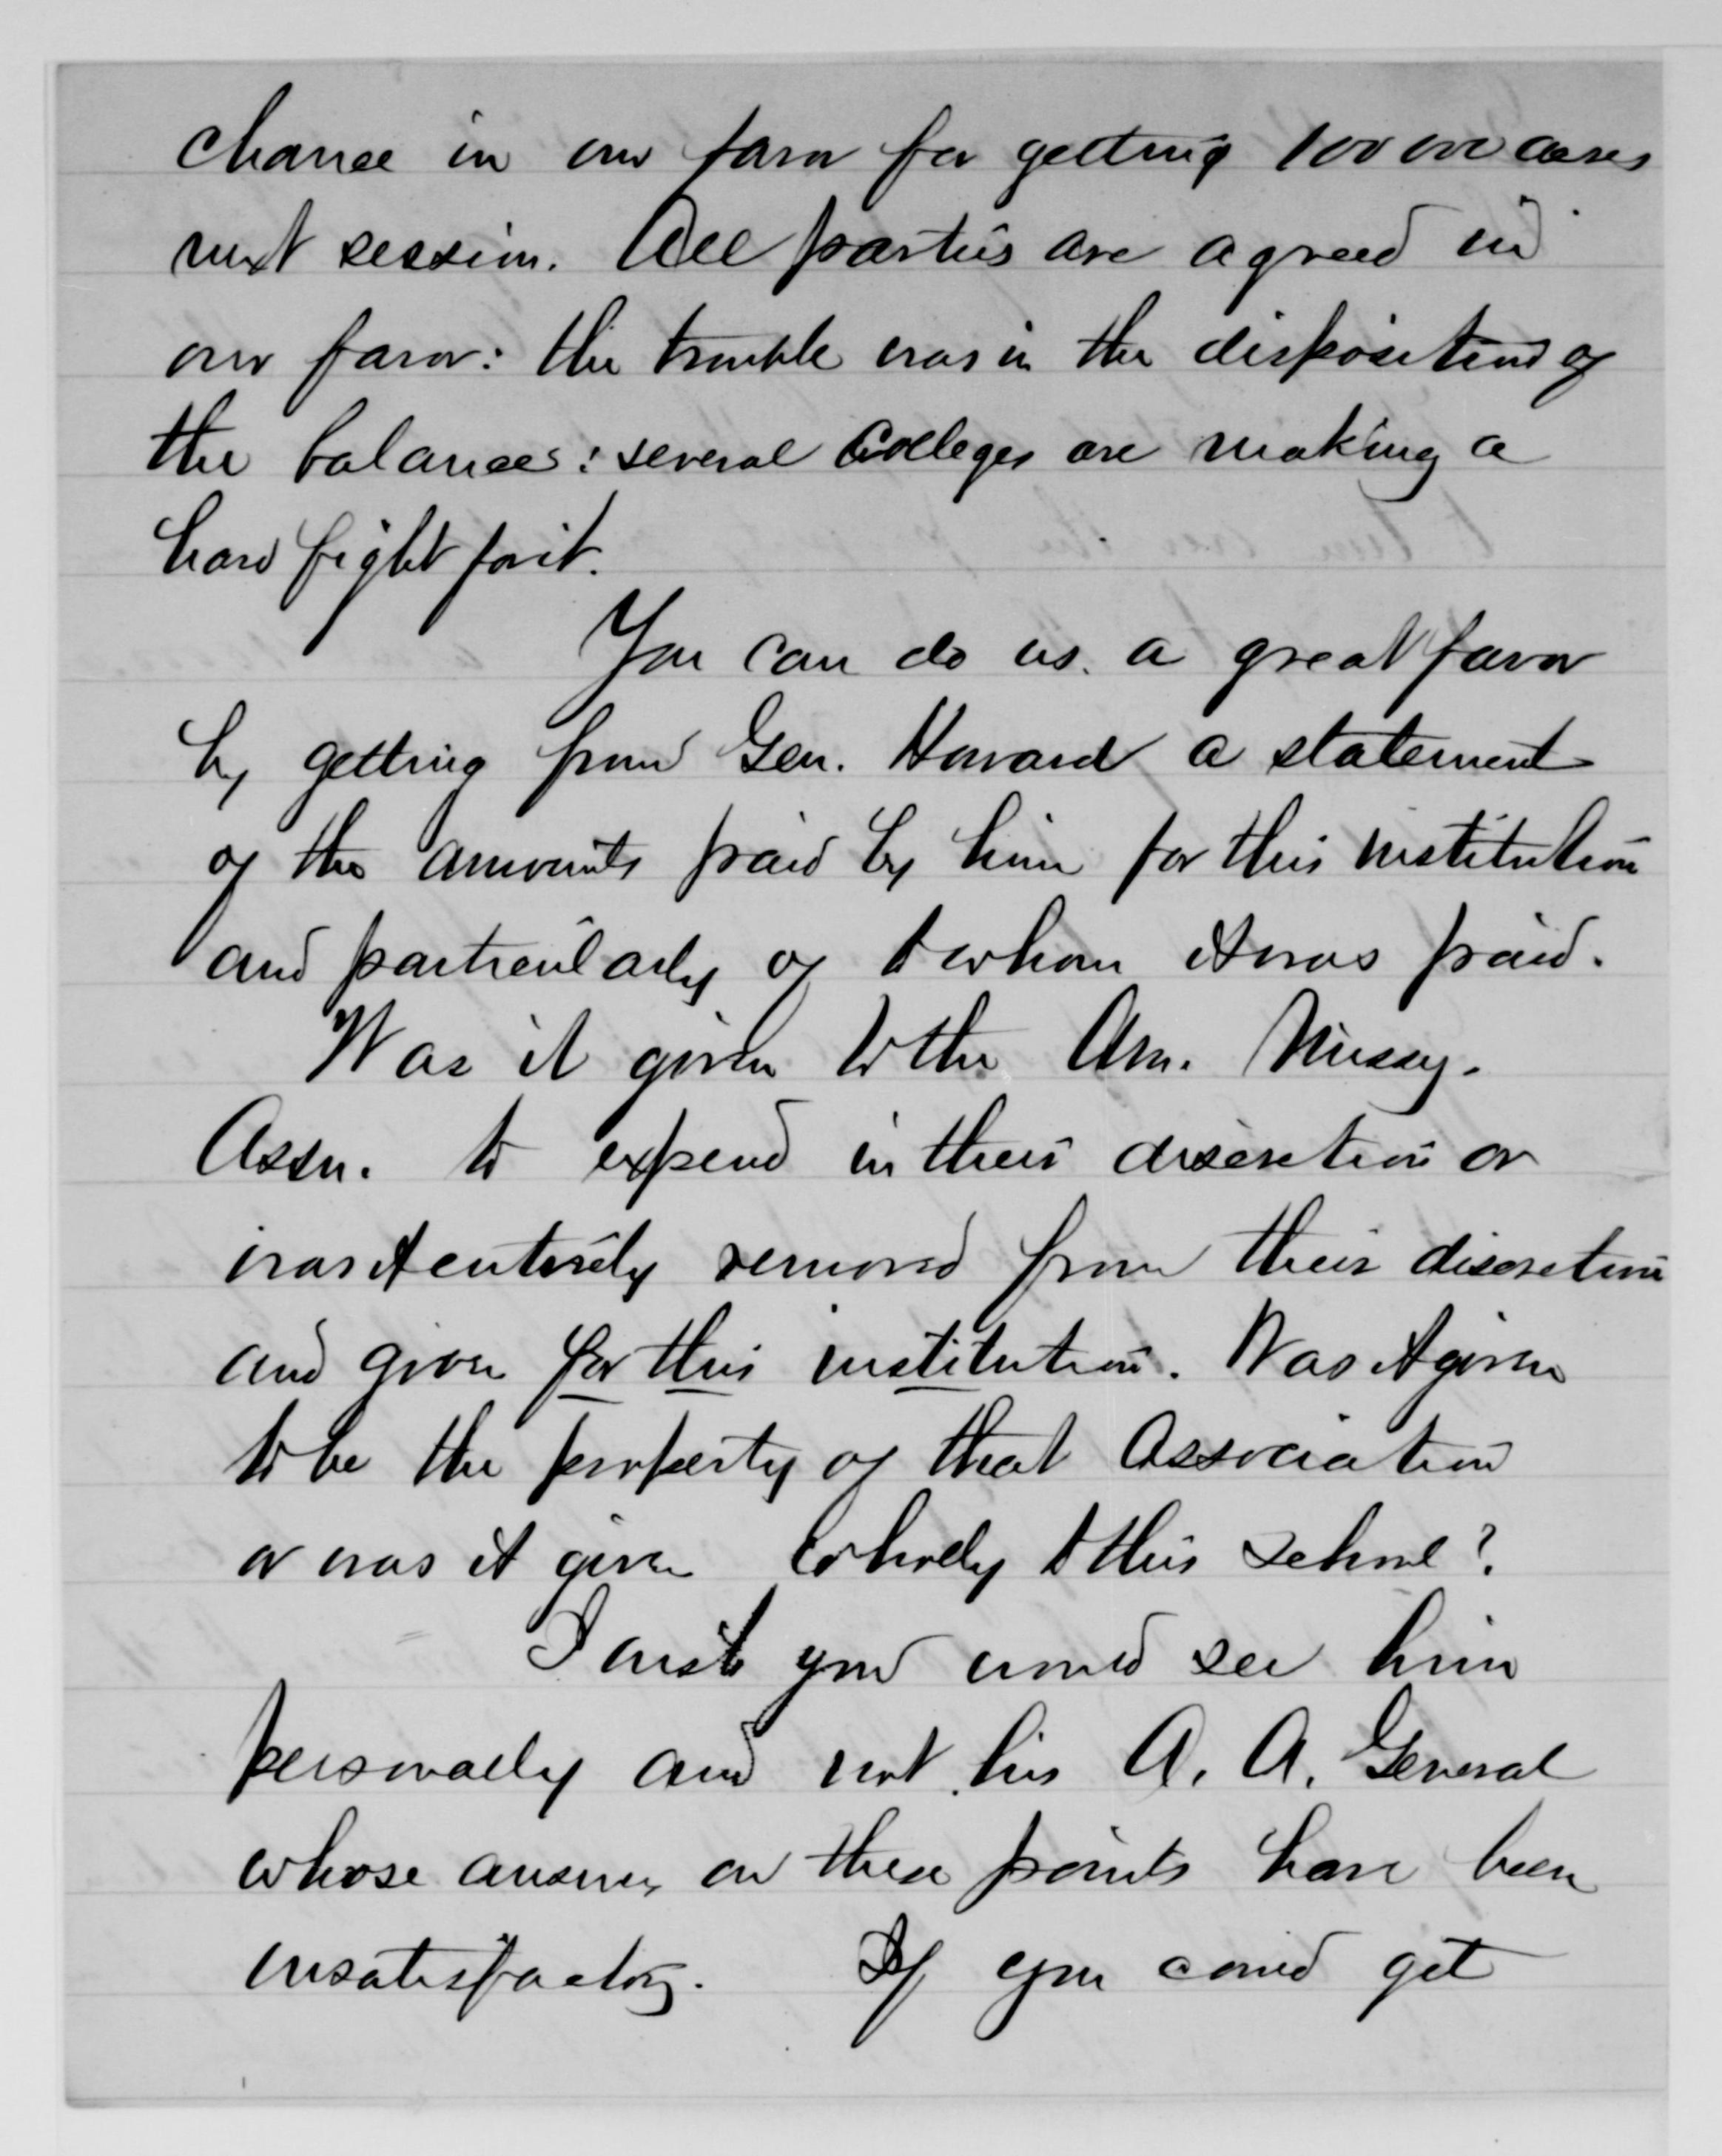 chance in our favor for getting 100 000 acres
next session. All parties are agreed in
our favor: the trouble was in the disposition of
the balances: several Colleges are making a
hard fight for it.
You can do us a great favor
by getting from Gen. Howard a statement
of the amounts paid by him for this institution
and particularly of to whom it was paid.
Was it given to the Am. Missy.
Assn. to expend in their discretion or
was it entirely removed from their discretion
and given for this institution. Was it given
to be the property of that Association
or was it given wholly to this school?
I wish you would see him
personally and not his A. A. General
whose answers on these points have been
unsatisfactory. If you could get